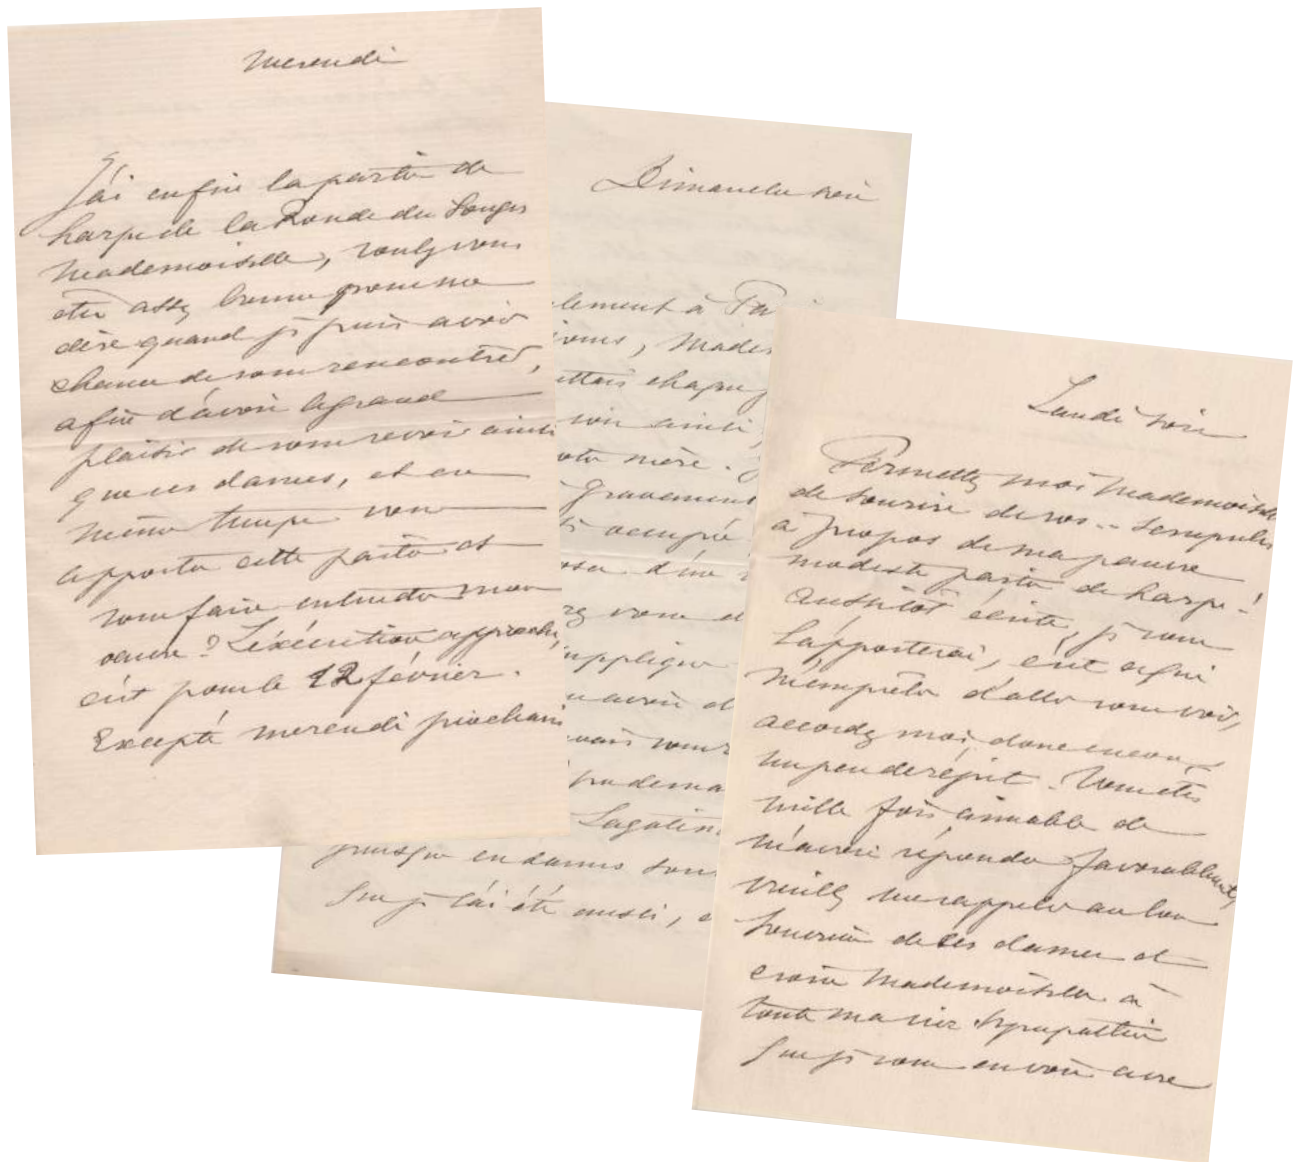 Mercredi
J'ai enfin la partie de
harpe de la Ronde du Songe
Mademoiselle, voulez vous
être assez bonne pour me
dire quand je puis avoir
chance de vous rencontrer,
afin d'avoir le grand
plaisir de vous revoir ainsi
que ces dames, et en
même temps vous
apporter cette partie et
vous faire entendre mon
œuvre? L'exécution approche,
c'est pour le 12 février.
Excepté mercredi prochain
Dimanche soir
lement à Par
vous, Made
ettais chaque j
voir ainsi,
votre mère.
gravement
occupé
d'une
vous d
supplique
avoir d
vous
puisque ces dames sont
que je l'ai été aussi,
Lundi soir
Permettez moi Mademoiselle
de sourire de vos .. scrupules
à propos de ma pauvre
modeste partie de harpe -!
Aussitôt écrite, je vous
l'apporterai, c'est ce qui
m'empêche d'aller vous voir,
accordez moi donc encore
un peu de répit. Vous êtes
mille fois aimable de
m'avoir répondu favorablement,
veuillez me rappeler au bon
souvenir de ces dames et
croire Mademoiselle à
toute ma vive sympathie
que je vous envoie avec